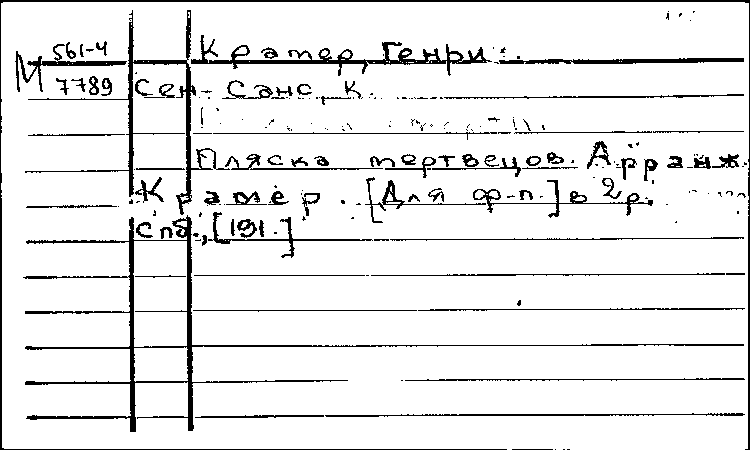 561-4 Крамер, Генри.
М 7789 Сен-Санс, К.
Пляска мертвецов. Арранж.
Крамер. [Для ф-п.] в 2 р.
Спб., [191.]